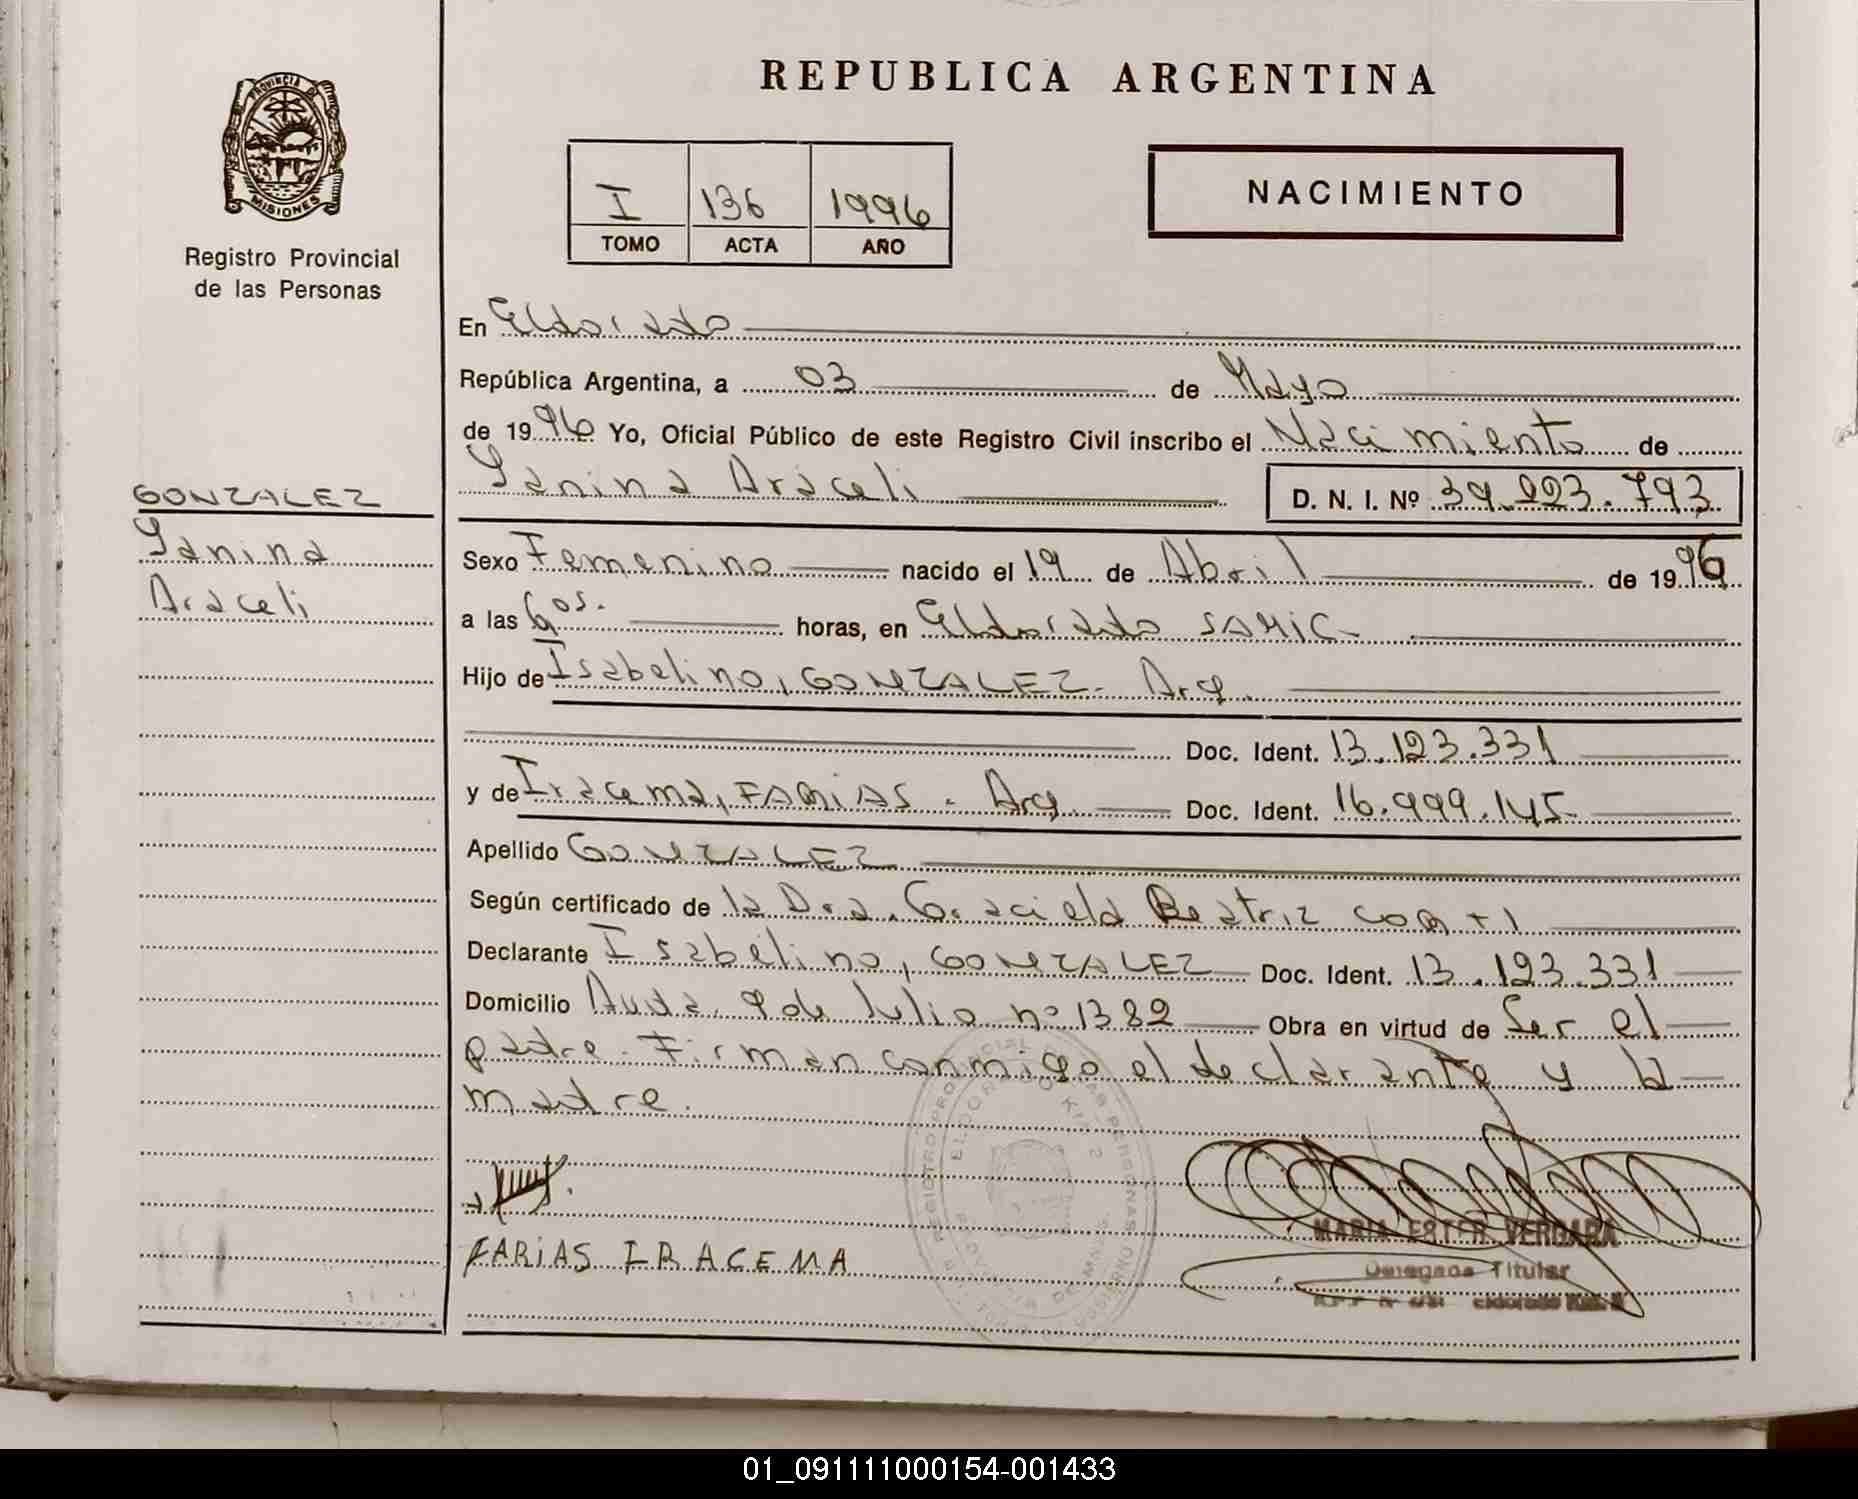 REPUBLICA ARGENTINA
PROVINCIA DE
MISIONES
Registro Provincial
de las Personas
I 136 1996
TOMO ACTA AÑO
NACIMIENTO
En Eldorado
República Argentina, a 03 de Mayo
de 1996 Yo, Oficial Público de este Registro Civil inscribo el Nacimiento de
Yanina Araceli D. N. I. Nº 39.223.793
GONZALEZ
Yanina
Araceli
Sexo Femenino nacido el 19 de Abril de 1996
a las horas, en Eldorado SAMIC-
Hijo de Isabelino, GONZALEZ- Arg.
Doc. Ident. 13.123.331
y de Iracema, FARIAS - Arg. Doc. Ident. 16.999.145-
Apellido GONZALEZ
Según certificado de la Dra. Graciela Beatriz CORTI
Declarante Isabelino, GONZALEZ Doc. Ident. 13.123.331
Domicilio Avda. 9 de Julio nº 1382 Obra en virtud de Ser el
padre. Firman conmigo el declarante y la
madre.
FARiAS IRACEMA
MARIA ESTER VERGARA
Delegada Titular
01_091111000154-001433